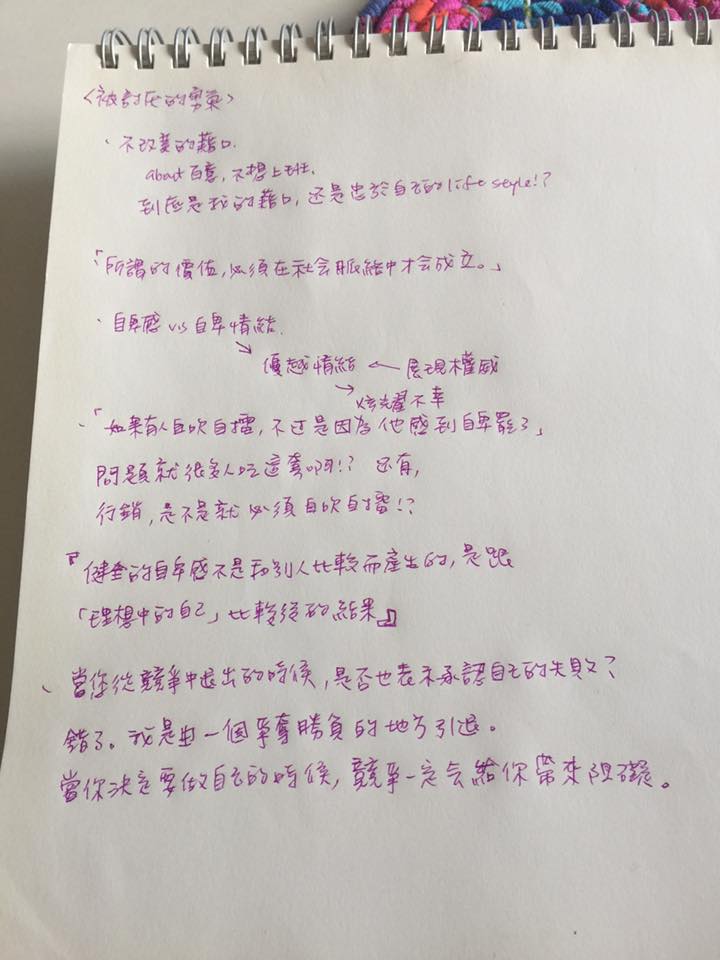 <被討厭的勇氣>
、不改變的藉口.
about 百意, 不想上班.
到底是我的藉口, 还是忠於自己的 life style!?
「所謂的價值, 必須在社会脈絡中才会成立。」
、自卑感 vs 自卑情結.
↘ 優越情結 ← 展現權威
↘ 炫耀不幸
、「如果有人自吹自擂, 不过是因為他感到自卑罷了」
問題就很多人吃這套啊!? 还有,
行銷, 是不是就必須自吹自擂!?
『健全的自卑感不是和別人比較而產生的, 是跟
「理想中的自己」比較後的結果』
、當您從競爭中退出的時候, 是否也表示承認自己的失敗?
錯了。我是由一個爭奪勝負的地方引退。
當你決定要做自己的時候, 競爭一定会給你帶來阻礙。